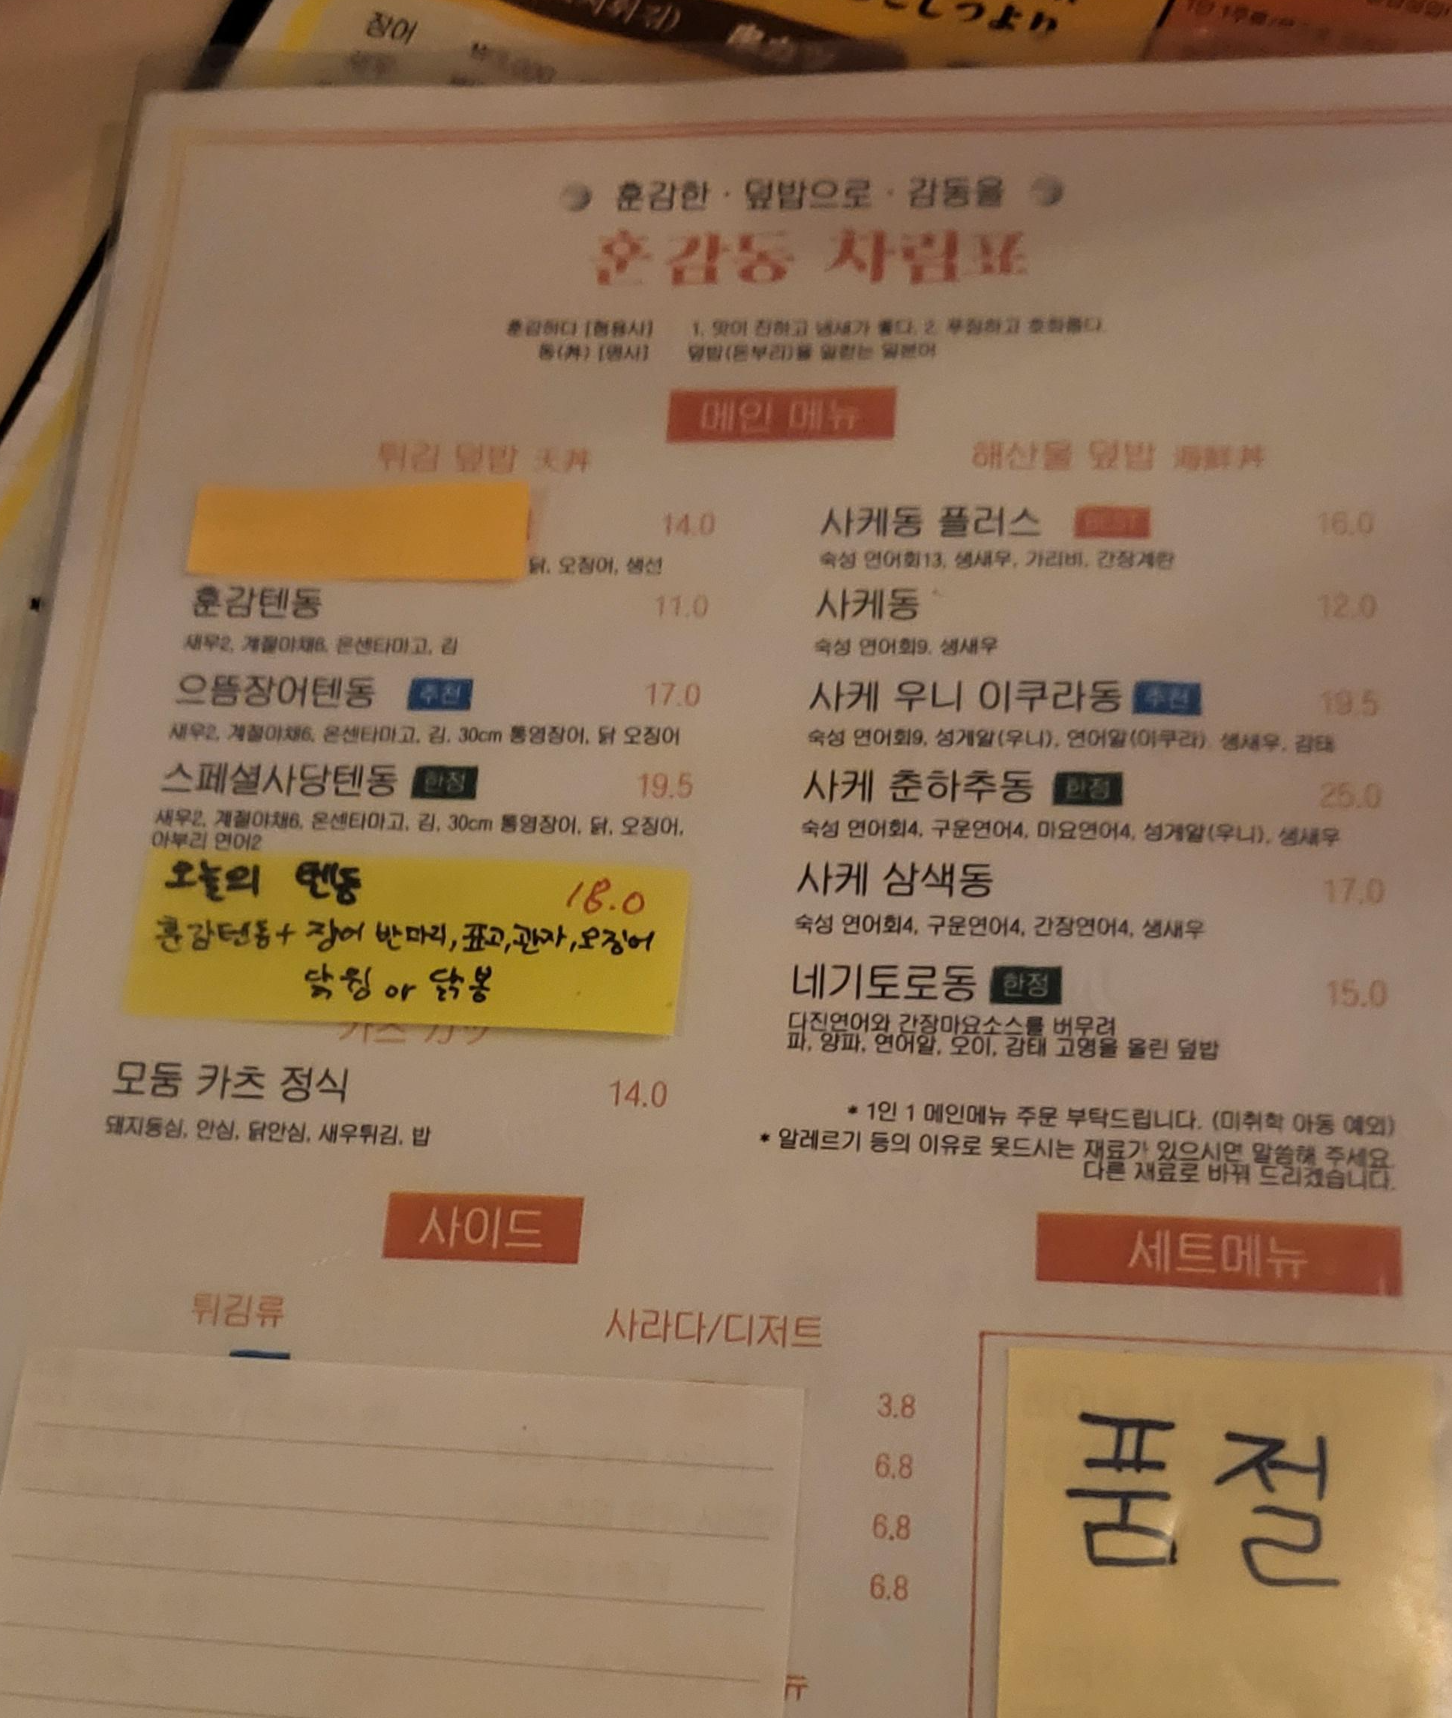 장어
훈감한 · 덮밥으로 · 감동을
훈감동 차림표
훈감하다 [형용사] 1. 맛이 진하고 냄새가 좋다. 2. 푸짐하고 호화롭다.
동(丼) [명사] 덮밥(돈부리)을 일컫는 일본어
메인 메뉴
튀김 덮밥 天丼
14.0
닭, 오징어, 생선
훈감텐동 11.0
새우2, 계절야채6, 온센타마고, 김
으뜸장어텐동 추천 17.0
새우2, 계절야채6, 온센타마고, 김, 30cm 통영장어, 닭 오징어
스페셜사당텐동 한정 19.5
새우2, 계절야채6, 온센타마고, 김, 30cm 통영장어, 닭, 오징어,
아부리 연어2
오늘의 텐동 18.0
훈감텐동+ 장어 반마리, 표고, 관자, 오징어
닭윙 or 닭봉
모둠 카츠 정식 14.0
돼지등심, 안심, 닭안심, 새우튀김, 밥
해산물 덮밥 海鮮丼
사케동 플러스 BEST 16.0
숙성 연어회13, 생새우, 가리비, 간장계란
사케동 12.0
숙성 연어회9, 생새우
사케 우니 이쿠라동 추천 19.5
숙성 연어회9, 성게알(우니), 연어알(이쿠라), 생새우, 감태
사케 춘하추동 한정 25.0
숙성 연어회4, 구운연어4, 마요연어4, 성게알(우니), 생새우
사케 삼색동 17.0
숙성 연어회4, 구운연어4, 간장연어4, 생새우
네기토로동 한정 15.0
다진연어와 간장마요소스를 버무려
파, 양파, 연어알, 오이, 감태 고명을 올린 덮밥
* 1인 1 메인메뉴 주문 부탁드립니다. (미취학 아동 예외)
* 알레르기 등의 이유로 못드시는 재료가 있으시면 말씀해 주세요.
다른 재료로 바꿔 드리겠습니다.
사이드
튀김류
사라다/디저트
3.8
6.8
6.8
6.8
세트메뉴
품절